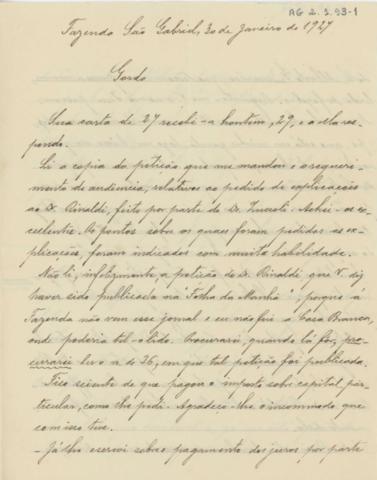 AG 2.3.93-1
Fazenda São Gabriel, 30 de Janeiro de 1927
Gordo
Sua carta de 27 recebi-a hontem, 29, e a ella res-
pondo.
Li a copia da petição que me mandou e o requeri-
mento de audiencia, relativos ao pedido de explicações
ao Dr Rivaldi, feito por parte do Dr. Achei-os ex-
cellentes. Os pontos sobre os quaes foram pedidas as ex-
plicações, foram indicados com muita habilidade.
Não li, infelizmente, a petição do Dr. Rivaldi que V. diz
haver sido publicada na "Folha da Manhã", porque a
Fazenda não vem esse jornal e eu não fui a Casa Branca,
onde poderia tel-o lido. Procurarei, quando lá for, pro-
curarei ler o n. de 26, em que tal petição foi publicada.
Fico sciente de que pagou o imposto sobre capital par-
ticular, como lhe pedi. Agradeço-lhe o incommodo que
com isso teve.
- Já lhe escrevi sobre pagamento dos juros por parte